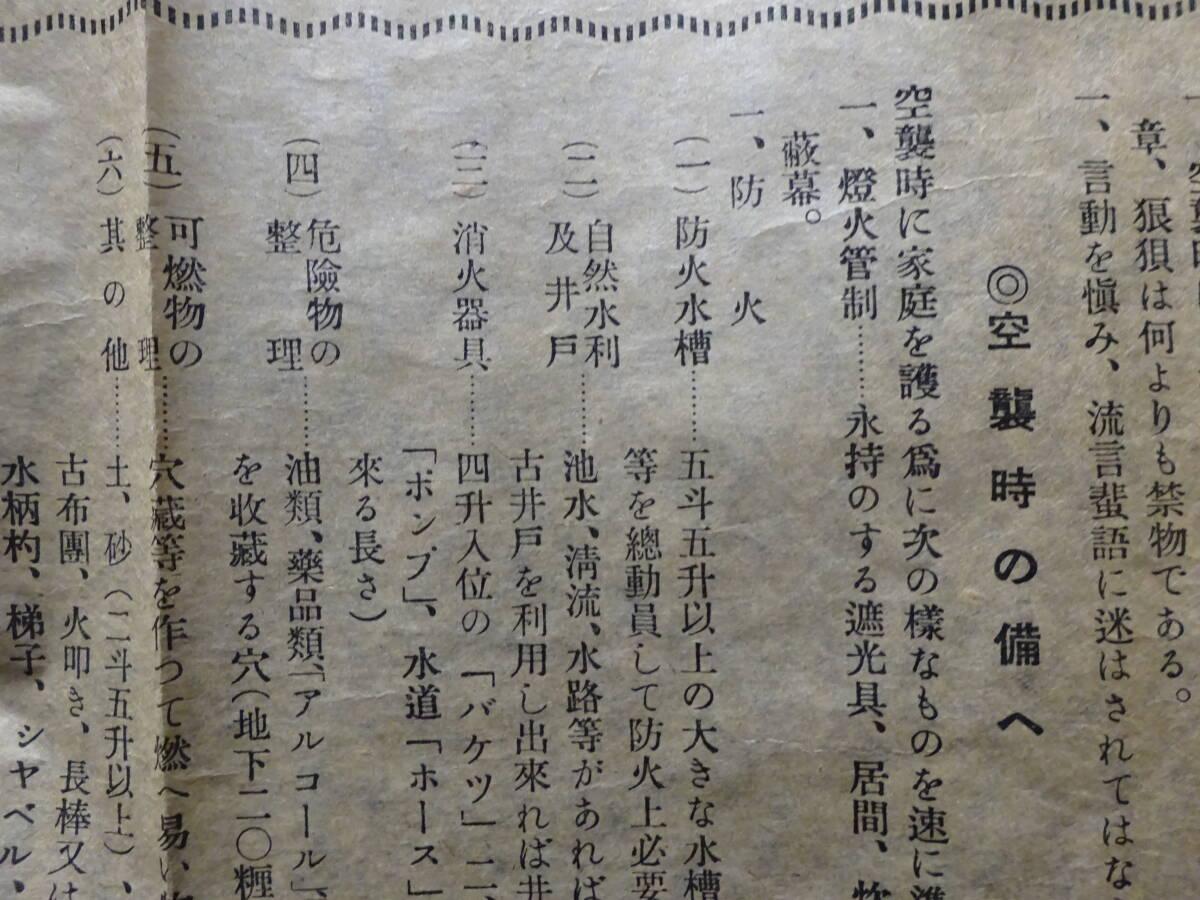 一、空襲時
章、狼狽は何よりも禁物である。
一、言動を愼み、流言蜚語に迷はされてはな
◎空襲時の備へ
空襲時に家庭を護る爲に次の樣なものを速に準
一、燈火管制……永持のする遮光具、居間、炊
蔽幕。
一、防火
(一)防火水槽……五斗五升以上の大きな水槽
等を總動員して防火上必要
(二)自然水利及井戸……池水、淸流、水路等があれば
古井戸を利用し出來れば井
(三)消火器具……四升入位の「バケツ」二、
「ポンプ」、水道「ホース」
來る長さ)
(四)危險物の整理……油類、藥品類、「アルコール」、
を收藏する穴(地下二〇糎
(五)可燃物の整理……穴藏等を作つて燃へ易い物
(六)其の他……土、砂(二斗五升以上)、
古布團、火叩き、長棒又は
水柄杓、梯子、シヤベル、